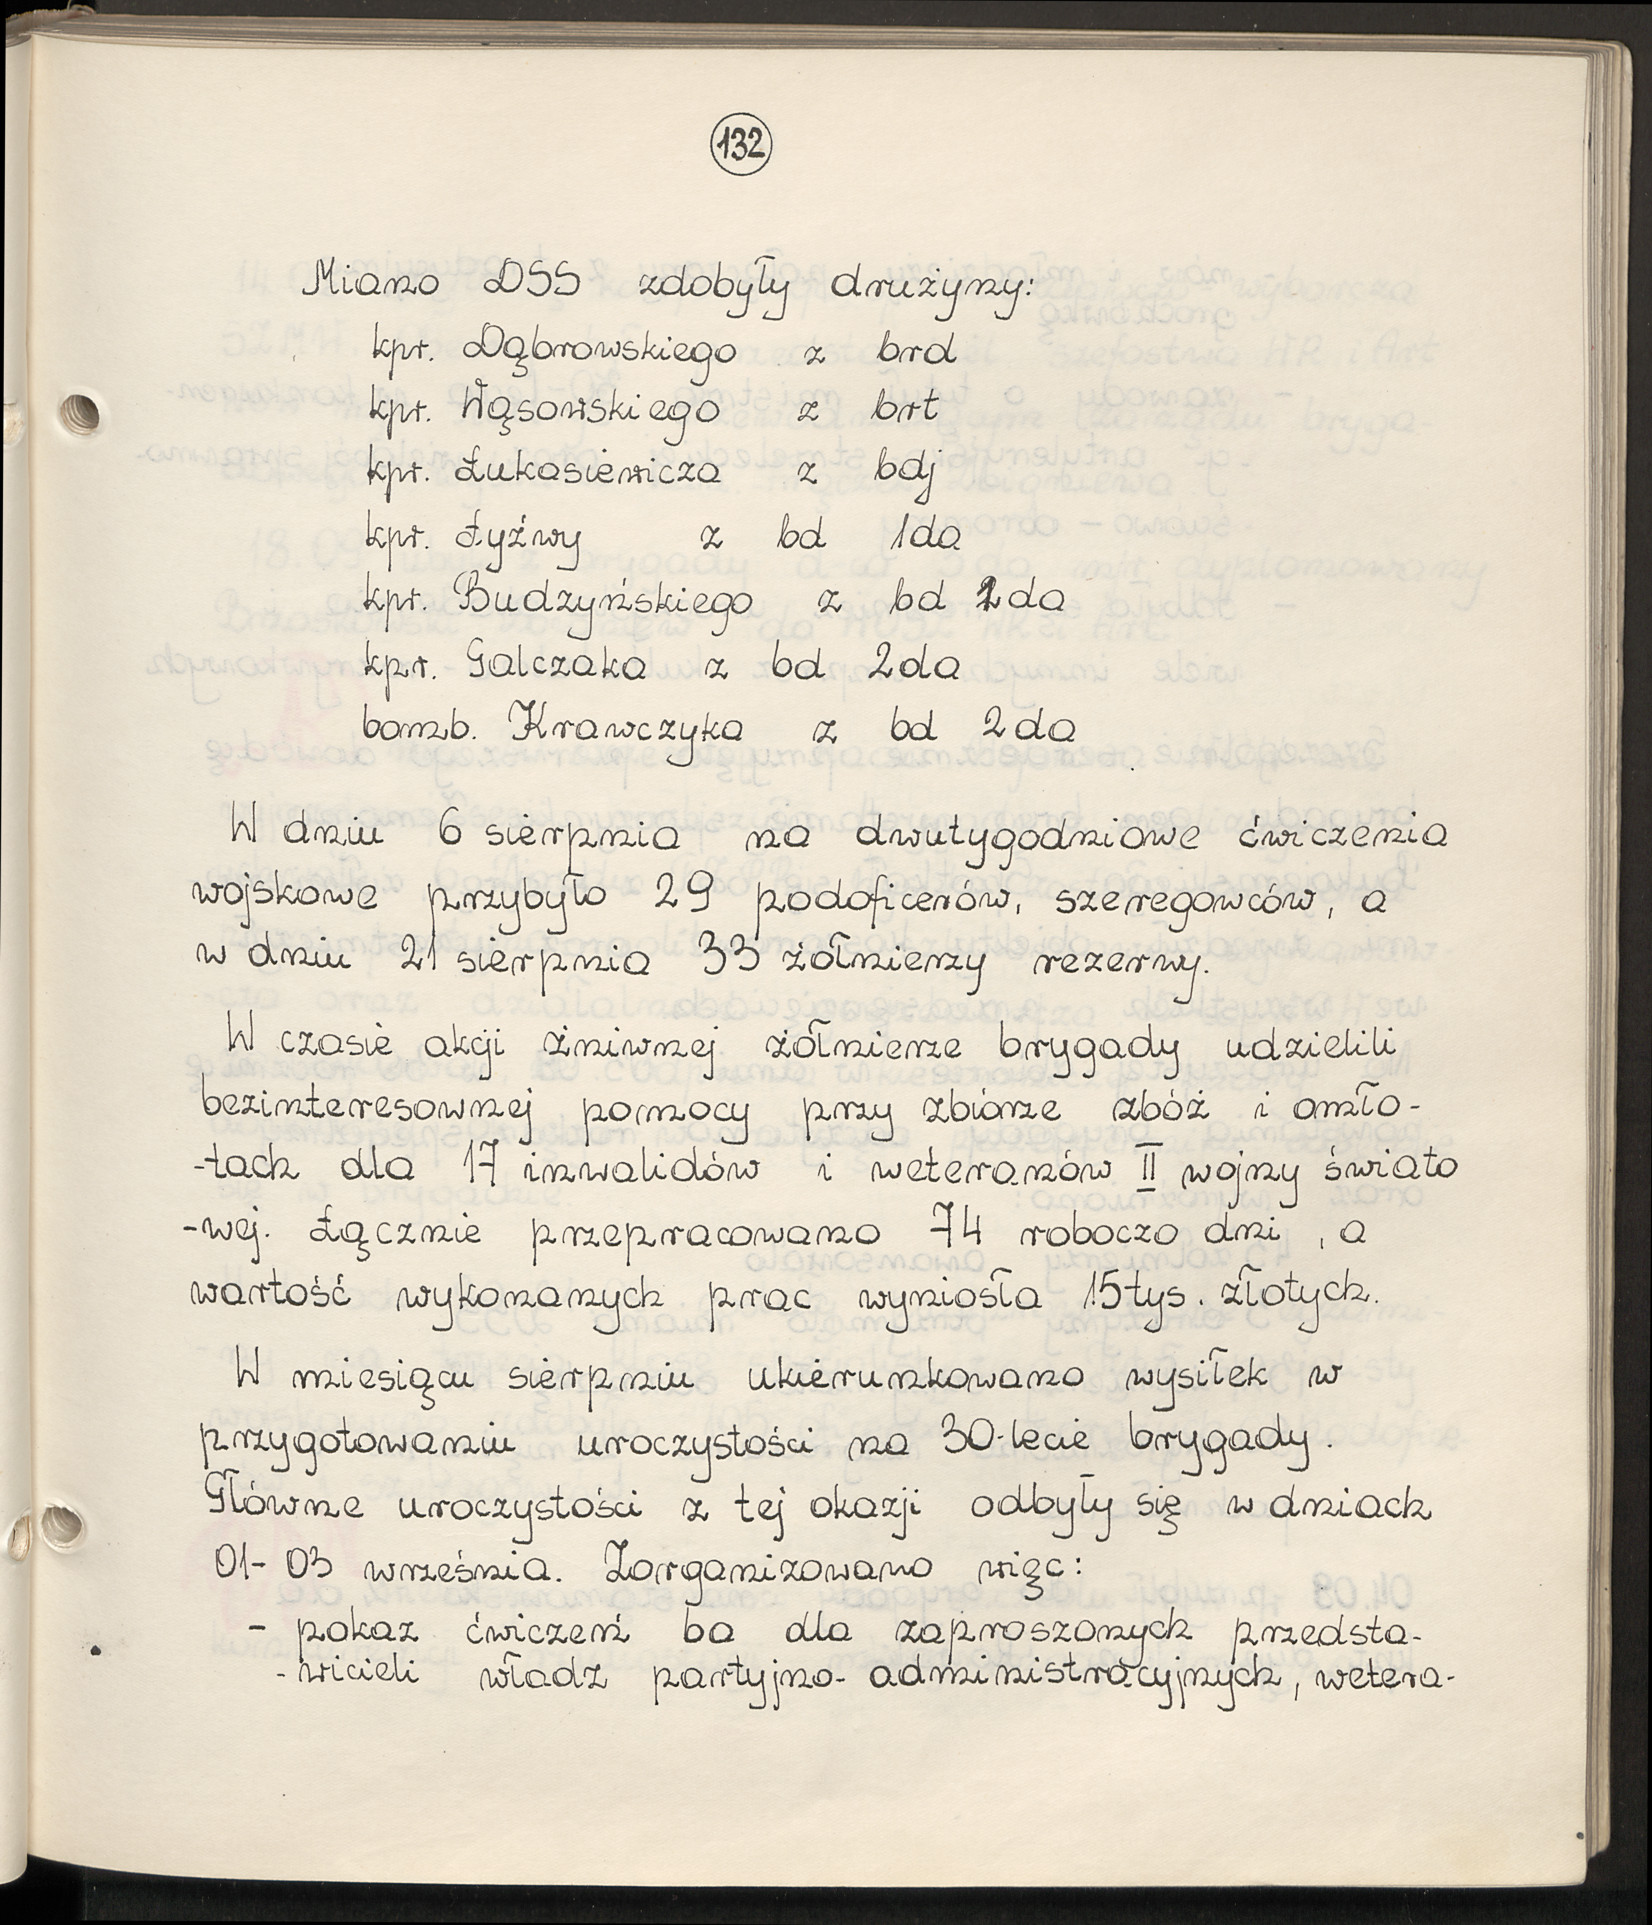 132
Miano DSS zdobyły drużyny:
kpr. Dąbrowskiego z brd
kpr. Wąsowskiego z brt
kpr. Łukasiewicza z bdj
kpr. Łyżwy z bd 1da
kpr. Budzyńskiego z bd 2da
kpr. Galczaka z bd 2da
bomb. Krawczyka z bd 2da
W dniu 6 sierpnia na dwutygodniowe ćwiczenia
wojskowe przybyło 29 podoficerów, szeregowców, a
w dniu 21 sierpnia 33 żołnierzy rezerwy.
W czasie akcji żniwnej żółnierze brygady udzielili
bezinteresownej pomocy przy zbiorze zbóż i omło-
-tach dla 17 inwalidów i weteranów II wojny świato
-wej. Łącznie przepracowano 74 roboczo dni , a
wartość wykonanych prac wyniosła 15tys. złotych.
W miesiącu sierpniu ukierunkowano wysiłek w
przygotowaniu uroczystości na 30-lecie brygady.
Główne uroczystości z tej okazji odbyły się w dniach
01-03 września. Zorganizowano więc:
- pokaz ćwiczeń ba dla zaproszonych przedsta-
-wicieli władz partyjno-administracyjnych, wetera-